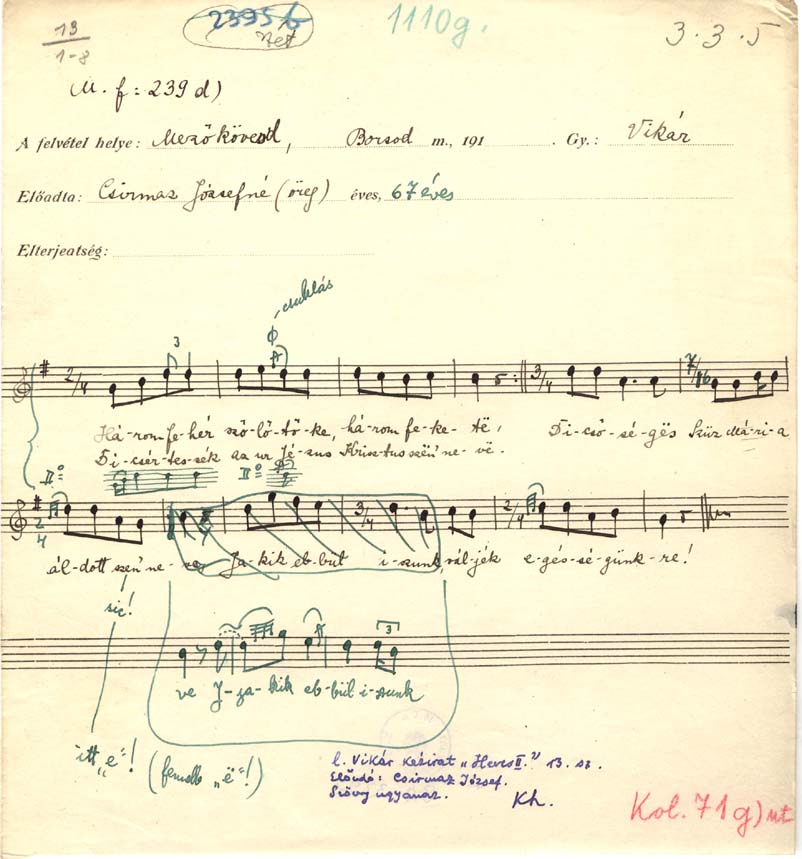 13 2395 b 1110g. 3.3.5
1-8
M. f: 239 d)
A felvétel helye: Mezőkövesd, Borsod m., 191 . Gy.: Vikár
Előadta: Csirmaz Józsefné (öreg) éves, 67 éves
Elterjeatség:
csuklás
3
2/4 3/4 7/16
Há-rom fe-hér szö-lö-tö-ke, három fe-ke-të, Di-cső-sé-gës Szűz Má-ri-a
Di-csér-tes-sék az ur Jé-zus Krisz-tus szën' ne-vë.
II° II°
2/4 3/4 2/4
ál-dott szën' ne-ve Ja-kik eb-bűl i-szunk, vál-jék e-gés-sé-günk-re!
sic!
3
ve J-za-kik eb-bűl i-szunk
itt "e"! (fennebb "ë"!)
l. Vikár kézirat "Heves II." 13. sz.
Előadó: Csirmaz József.
Szöveg ugyanaz. Kh.
Kol. 71g) nt